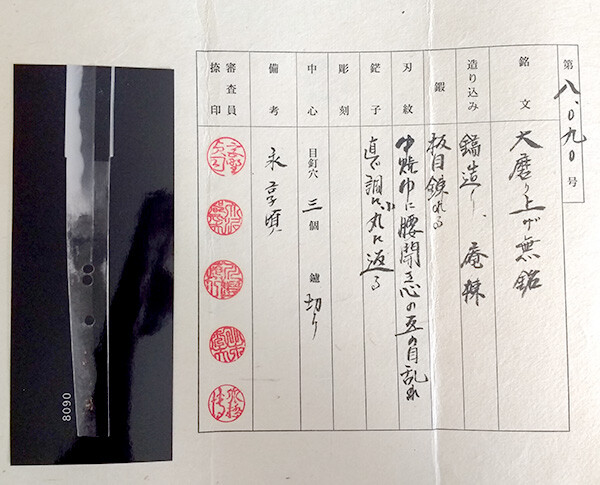 第 八、〇九〇 号
銘文 大磨り上げ無銘
造り込み 鎬造り、庵棟
鍛 板目錬れる
刃紋 中焼巾に腰開き心の互の目乱れ
鋩子 直ぐ調に小丸に返る
彫刻
中心 目釘穴 三個 鑢 切り
備考 永享頃
審査員捺印
8090